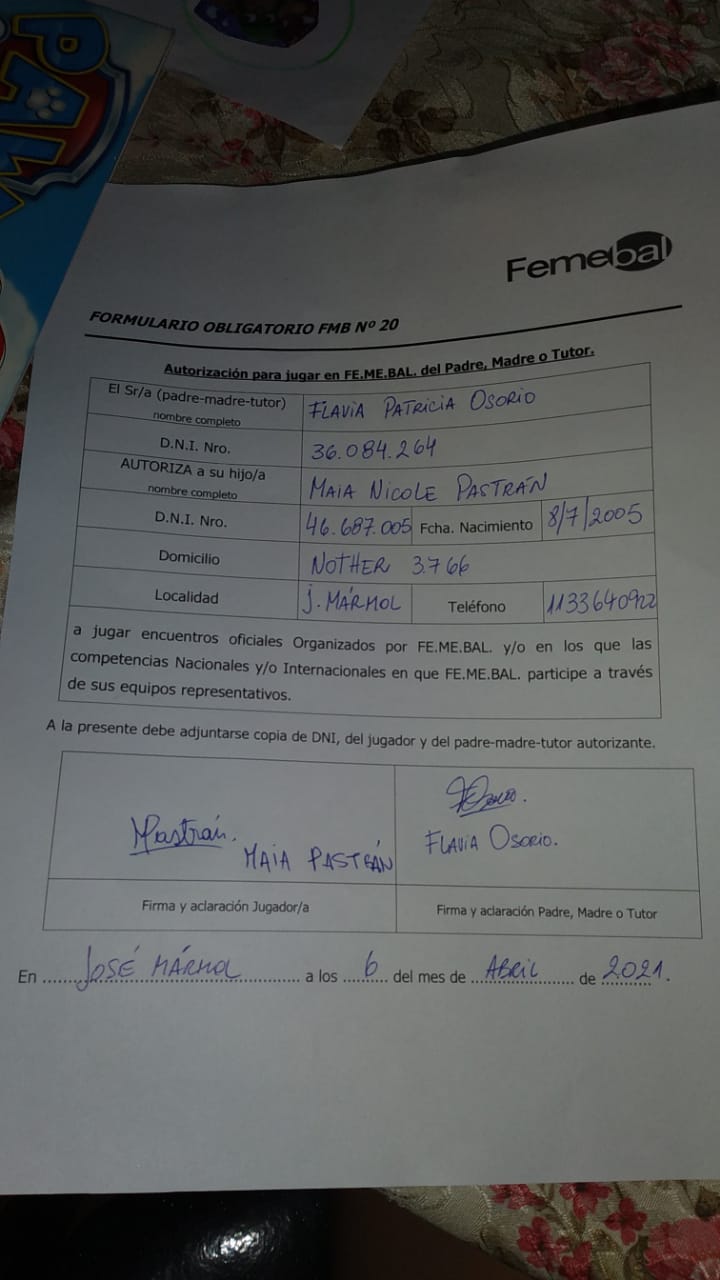 PAW
Femebal
FORMULARIO OBLIGATORIO FMB Nº 20
Autorización para jugar en FE.ME.BAL. del Padre, Madre o Tutor.
El Sr/a (padre-madre-tutor) nombre completo FLAVIA PATRICIA OSORIO
D.N.I. Nro. 36.084.264
AUTORIZA a su hijo/a nombre completo MAIA NICOLE PASTRÁN
D.N.I. Nro. 46.687.005 Fcha. Nacimiento 8/7/2005
Domicilio NOTHER 3.766
Localidad J. MÁRMOL Teléfono 1133640922
a jugar encuentros oficiales Organizados por FE.ME.BAL. y/o en los que las
competencias Nacionales y/o Internacionales en que FE.ME.BAL. participe a través
de sus equipos representativos.
A la presente debe adjuntarse copia de DNI, del jugador y del padre-madre-tutor autorizante.
MPastrán.
MAIA PASTRÁN
FLAVIA OSORIO.
Firma y aclaración Jugador/a
Firma y aclaración Padre, Madre o Tutor
En JOSÉ MÁRMOL a los 6 del mes de ABRIL de 2021.